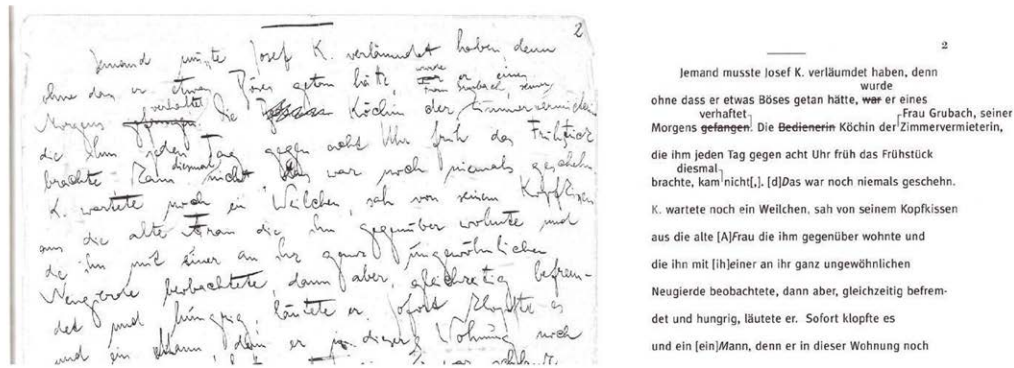 2
Jemand musste Josef K. verläumdet haben denn
wurde
ohne dass er etwas Böses getan hätte, war er eines
verhaftet Frau Grubach, seiner
Morgens gefangen. Die Köchin der Zimmervermieterin
die ihm jeden Tag gegen acht Uhr früh das Frühstück
diesmal
brachte kam nicht. Das war noch niemals geschehn.
K. wartete noch ein Weilchen, sah von seinem Kopfkissen
aus die alte Frau die ihm gegenüber wohnte und
die ihn mit einer an ihr ganz ungewöhnlichen
Neugierde beobachtete, dann aber, gleichzeitig befrem-
det und hungrig, läutete er. Sofort klopfte es
und ein Mann, den er in dieser Wohnung noch
2
Jemand musste Josef K. verläumdet haben, denn
wurde
ohne dass er etwas Böses getan hätte, war er eines
verhaftet Frau Grubach, seiner
Morgens gefangen. Die Bedienerin Köchin der Zimmervermieterin,
die ihm jeden Tag gegen acht Uhr früh das Frühstück
diesmal
brachte, kam nicht[,]. [d]Das war noch niemals geschehn.
K. wartete noch ein Weilchen, sah von seinem Kopfkissen
aus die alte [A]Frau die ihm gegenüber wohnte und
die ihn mit [ih]einer an ihr ganz ungewöhnlichen
Neugierde beobachtete, dann aber, gleichzeitig befrem-
det und hungrig, läutete er. Sofort klopfte es
und ein [ein]Mann, denn er in dieser Wohnung noch